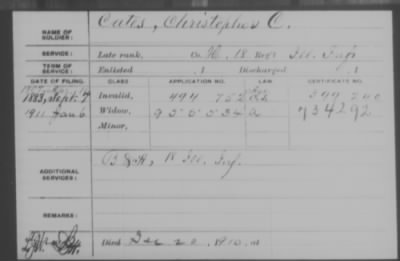 NAME OF SOLDIER: Cates, Christopher C.
SERVICE: Late rank, Co. H, 18 Reg't Ill. Inf.
TERM OF SERVICE: Enlisted , 1 Discharged , 1
DATE OF FILING. CLASS APPLICATION NO. LAW CERTIFICATE NO.
1883, Sept. 7 Invalid, 494 752
1911 Jan 6 Widow, 955534 a 734292
Minor,
ADDITIONAL SERVICES: B & H, 18 Ill. Inf.
REMARKS:
Died Dec 20, 1910, at